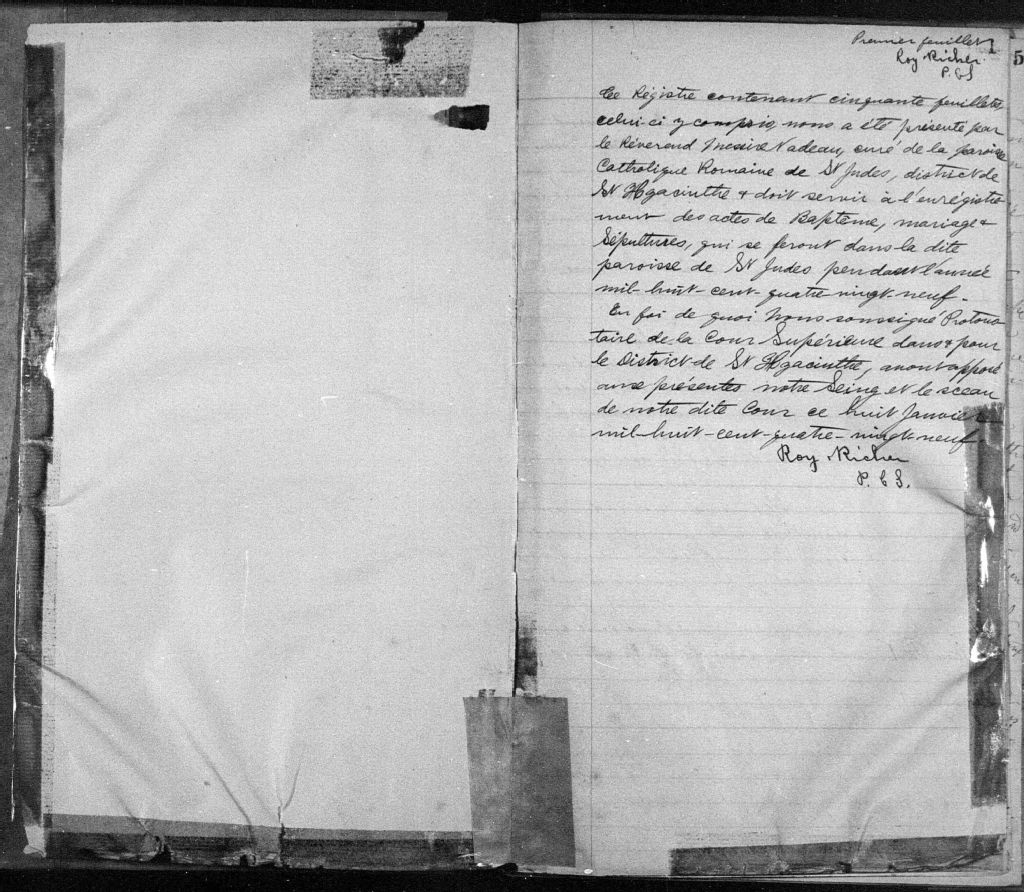 Premier feuillet
1
Roy & Richer
P. C S
5
Ce Régistre contenant cinquante feuillets,
celui-ci y compris, nous a été présenté par
le Révérend Messire Nadeau, curé de la paroisse
Catholique Romaine de St Judes, district de
St Hyacinthe & doit servir à l'enrégistre-
ment des actes de Baptême, mariage &
Sépultures, qui se feront dans la dite
paroisse de St Judes pendant l'année
mil-huit-cent-quatre-vingt-neuf.
En foi de quoi Nous soussigné Protono-
taire de la Cour Supérieure dans & pour
le District de St Hyacinthe, avons apposé
aux présentes notre Seing et le sceau
de notre dite Cour ce huit Janvier
mil-huit-cent-quatre-vingt-neuf.
Roy & Richer
P. C S.